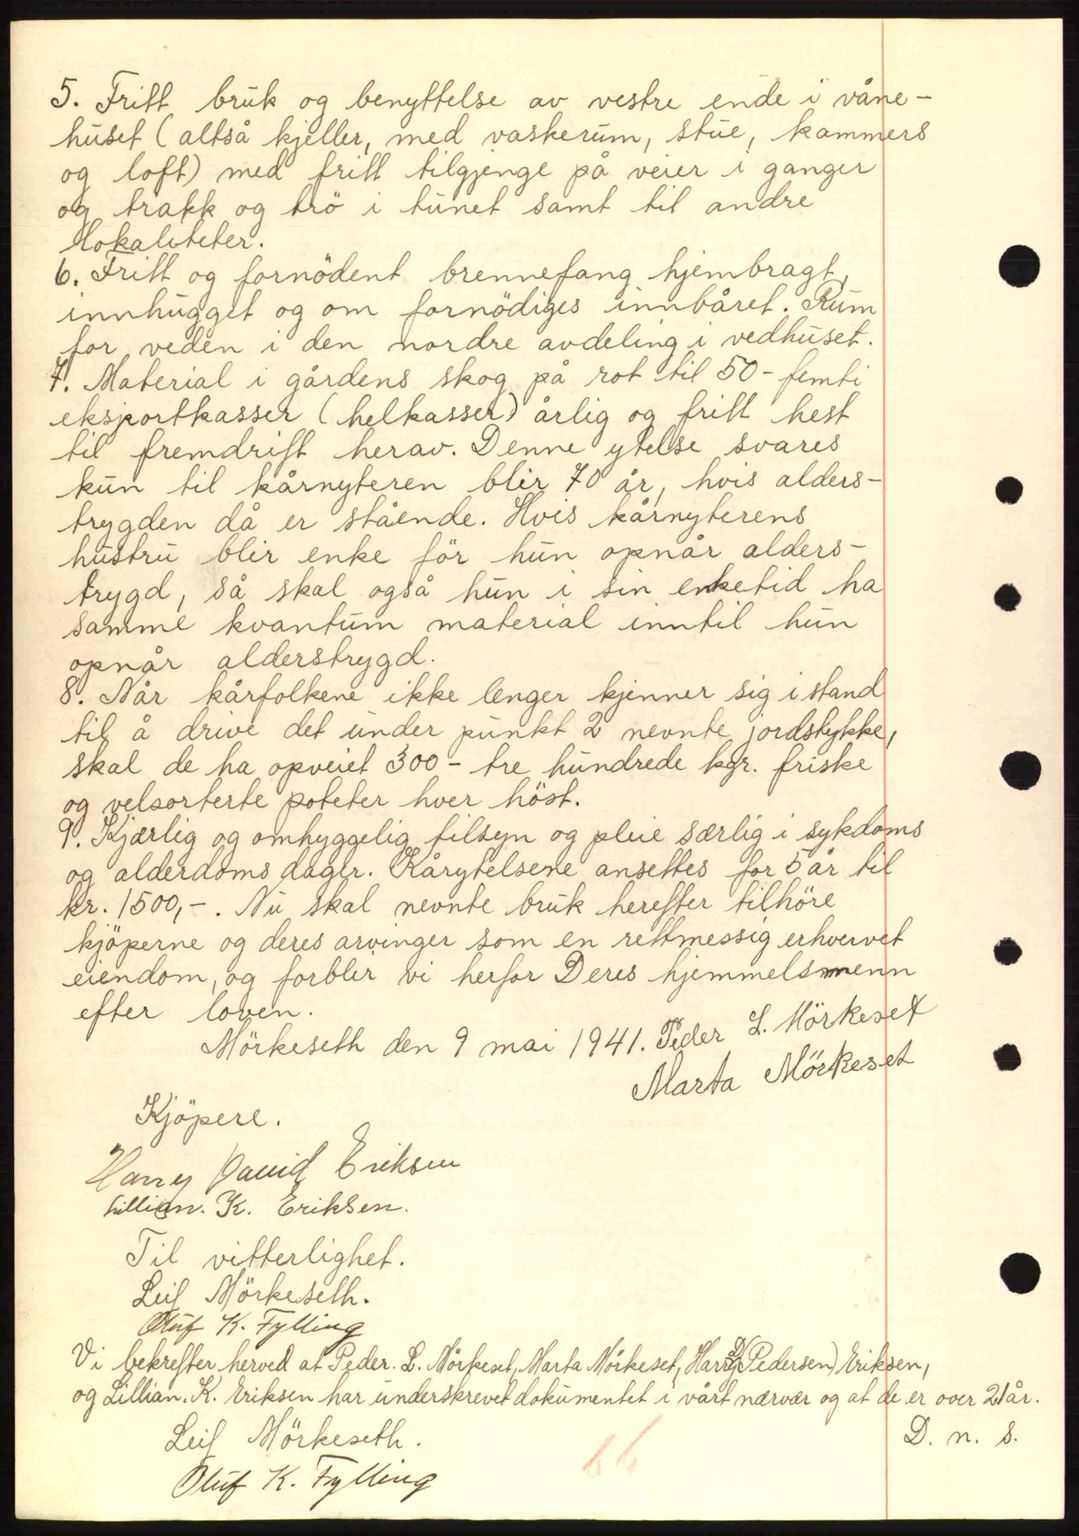 5. Fritt bruk og benyttelse av vestre ende i våne-
huset (altså kjeller, med vaskerum, stue, kammers
og loft) med fritt tilgjenge på veier i ganger
og trakk og trö i tunet samt til andre
lokaliteter.
6. Fritt og fornödent brennefang hjembragt,
innhugget og om fornödiges innbåret. Rum
for veden i den nordre avdeling i vedhuset.
7. Material i gårdens skog på rot til 50 - femti
eksportkasser (helkasser) årlig og fritt hest
til fremdrift herav. Denne ytelse svares
kun til kårnyteren blir 70 år, hvis alders-
trygden då er stående. Hvis kårnyterens
hustru blir enke för hun opnår alders-
trygd, så skal også hun i sin enketid ha
samme kvantum material inntil hun
opnår alderstrygd.
8. Når kårfolkene ikke lenger kjenner sig i stand
til å drive det under punkt 2 nevnte jordstykke,
skal de ha opveiet 300 - tre hundrede kgr. friske
og velsorterte poteter hver höst.
9. Kjærlig og omhyggelig tilsyn og pleie særlig i sykdoms
og alderdoms dagr. Kårytelsene ansettes for 5 år til
kr. 1500,-. Nu skal nevnte bruk herefter tilhöre
kjöperne og deres arvinger som en rettmessig erhvervet
eiendom, og forblir vi herfor Deres hjemmelsmenn
efter loven.
Mörkeseth den 9 mai 1941. Peder L. Mörkeset
Marta Mörkeset
Kjöpere.
Harry David Eriksen
Lillian. K. Eriksen.
Til vitterlighet.
Leif Mörkeseth.
Oluf K. Fylling
Vi bekrefter herved at Peder. L. Mörkeset, Marta Mörkeset, Harry (Pedersen) Eriksen,
og Lillian. K. Eriksen har underskrevet dokumentet i vårt nærvær og at de er over 21 år.
Leif Mörkeseth. D. n. s.
Oluf K. Fylling
66